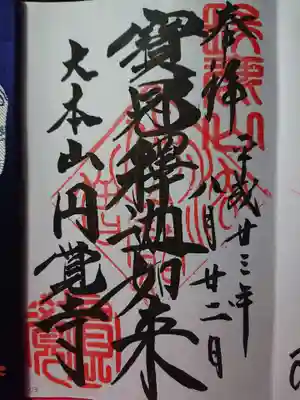 奉拝 平成廿三年
八月廿二月
寶冠釋迦如来
大本山円覚寺